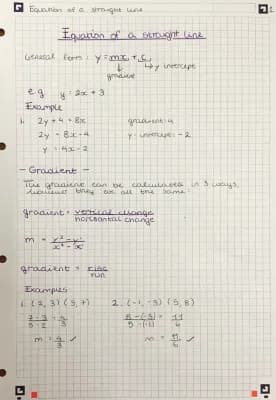 Equation of a straight line
1
Equation of a straight line
General Form: y = mx + c
↓ ↳ y intercept
gradient
e.g y = 2x + 3
Example
1. 2y + 4 = 8x gradient: 4
2y = 8x - 4 y-intercept: -2
y = 4x - 2
- Gradient -
The gradient can be calculated in 3 ways,
however they are all the same.
gradient = vertical change
horizontal change
m = y² - y¹
x² - x¹
gradient = rise
run
Examples
1. (2, 3) (5, 7) 2. (-1, -3) (5, 8)
7-3 = 4 8-(-3) = 11
5-2 3 5-(-1) 6
m = 4 ✓ m = 11 ✓
3 6